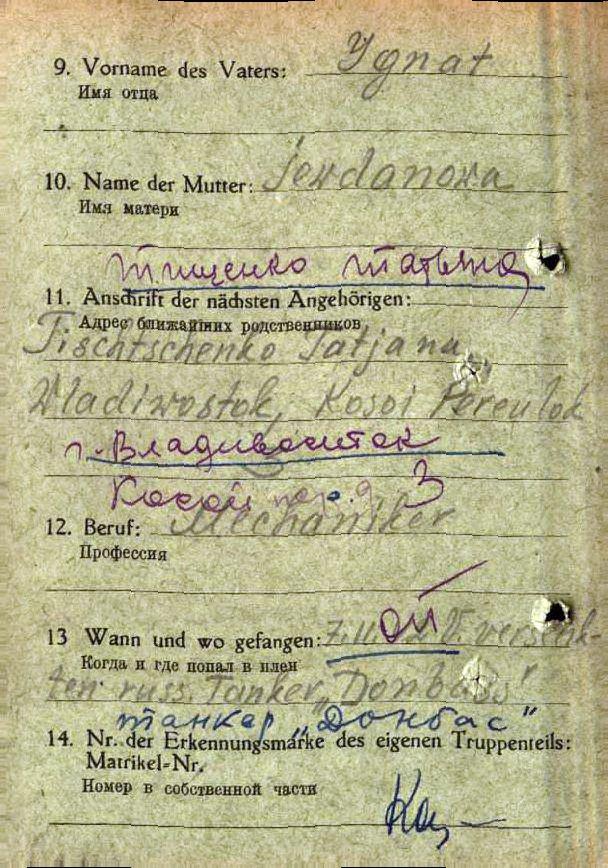 9. Vorname des Vaters: Ygnat
Имя отца
10. Name der Mutter: Jewdanowa
Имя матери
Тищенко Татьяна
11. Anschrift der nächsten Angehörigen:
Адрес ближайших родственников
Tischtschenko Tatjana
Wladiwostok, Kosoi Pereulok
г. Владивосток
Косой пер. д 3
12. Beruf: Mechaniker
Профессия
13 Wann und wo gefangen: 7.11. V. versenk-
Когда и где попал в плен
ten russ. Tanker „Donbass"
танкер „Донбас"
14. Nr. der Erkennungsmarke des eigenen Truppenteils:
Matrikel-Nr.
Номер в собственной части